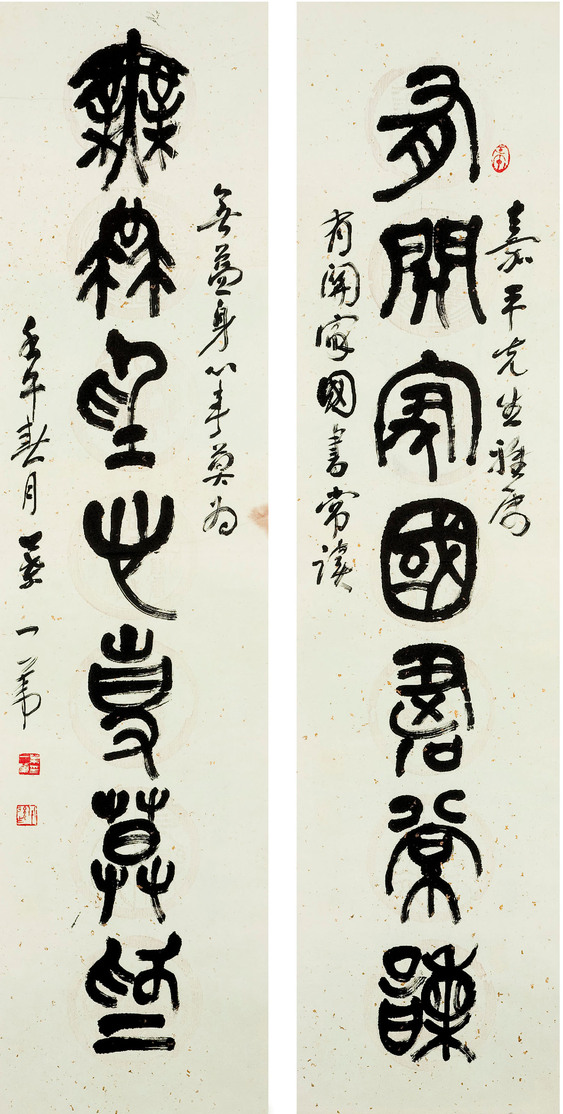 嘉平先生雅屬
有關家國書常讀
有關家國書常讀
無益身心事莫為
無益身心事莫為
壬午春月 一